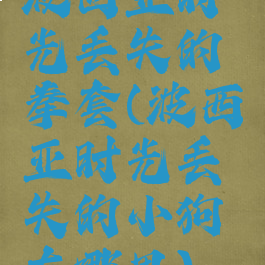 波西亚时
光丢失的
拳套(波西
亚时光丢
失的小狗
在哪里)